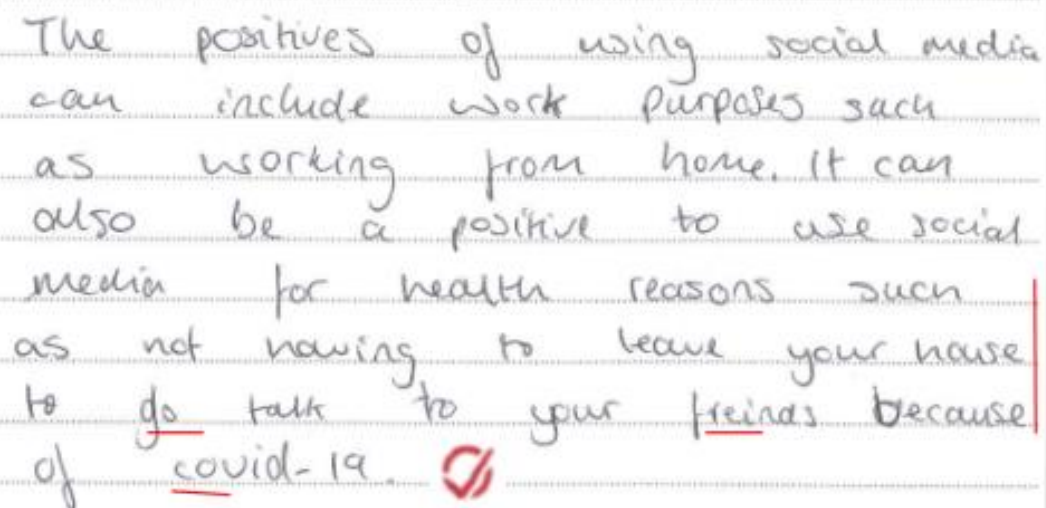 The positives of using social media
can include work purposes such
as working from home. It can
also be a positive to use social
media for health reasons such
as not having to leave your house
to go talk to your freinds because
of covid-19.